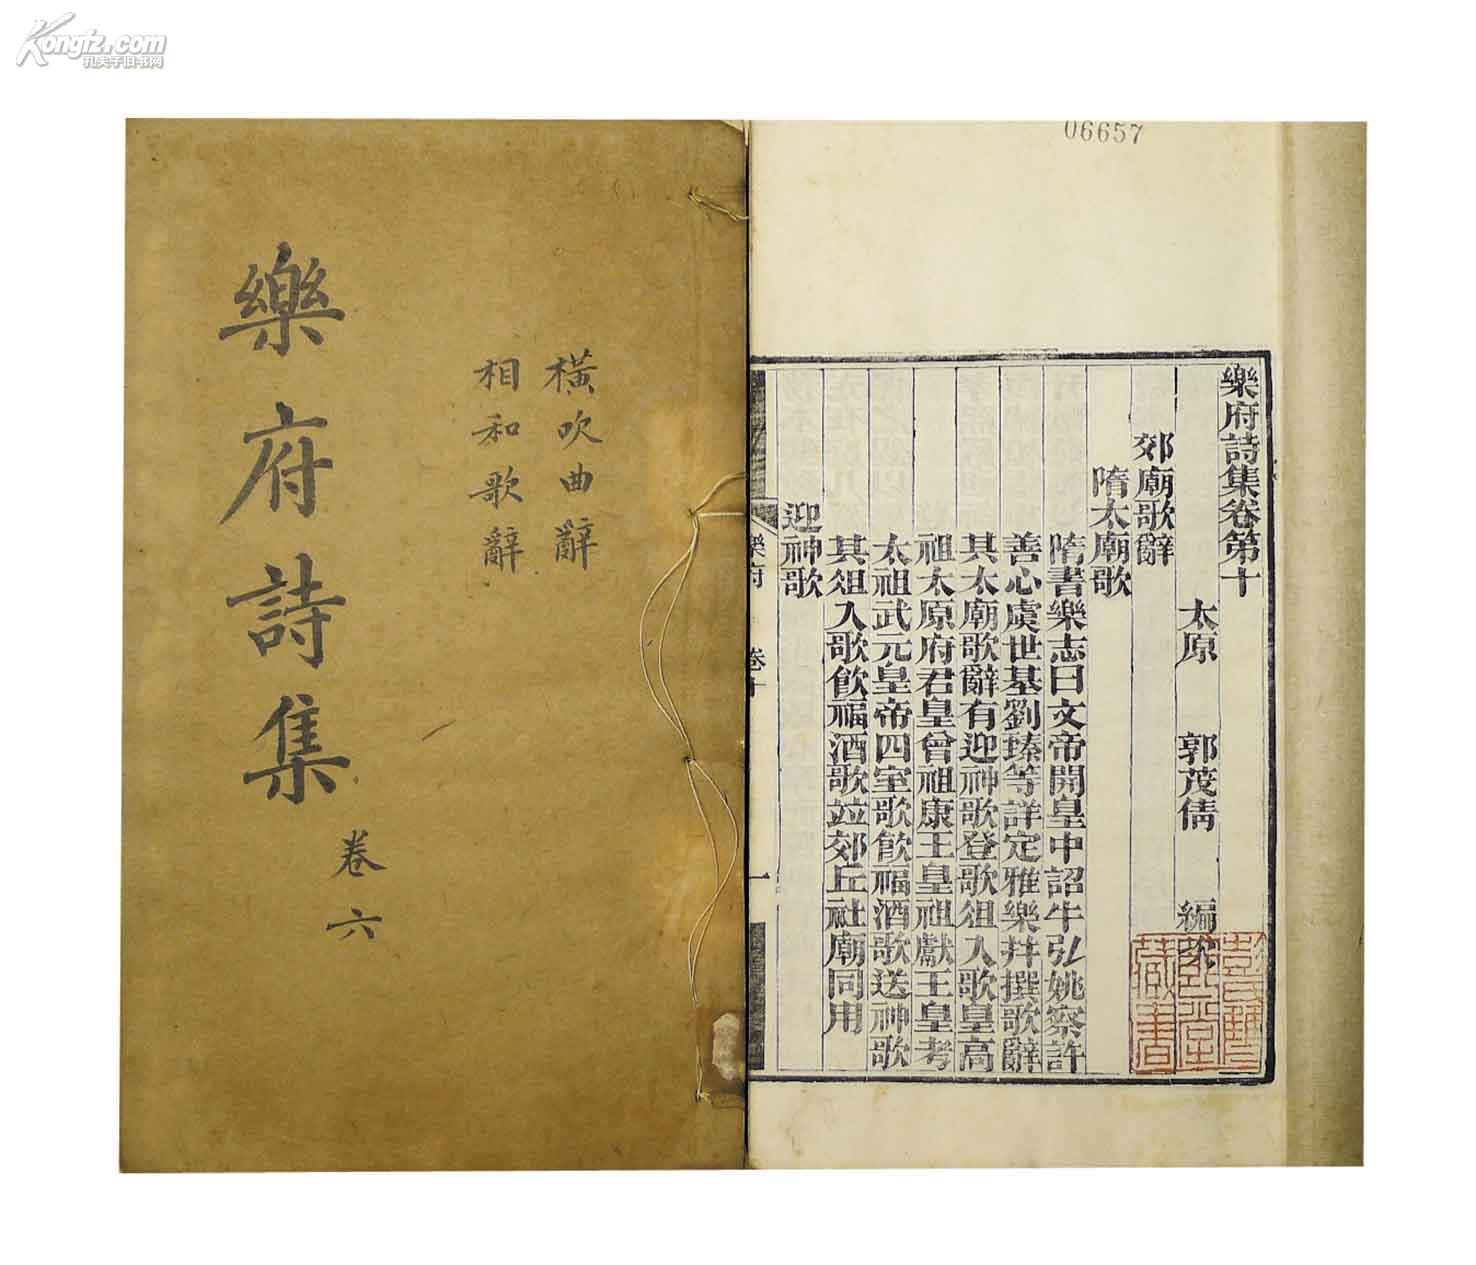 Kongfz.com
孔夫子旧书网
橫吹曲辭
相和歌辭
樂府詩集
卷六
06657
樂府詩集卷第十
太原 郭茂倩 編次
郊廟歌辭
隋太廟歌
隋書樂志曰文帝開皇中詔牛弘姚察許
善心虞世基劉臻等詳定雅樂幷撰歌辭
其太廟歌辭有迎神歌登歌俎入歌皇高
祖太原府君皇曾祖康王皇祖獻王皇考
太祖武元皇帝四室歌飮福酒歌送神歌
其俎入歌飮福酒歌竝郊丘社廟同用
迎神歌
樂府 卷十 一
藏書